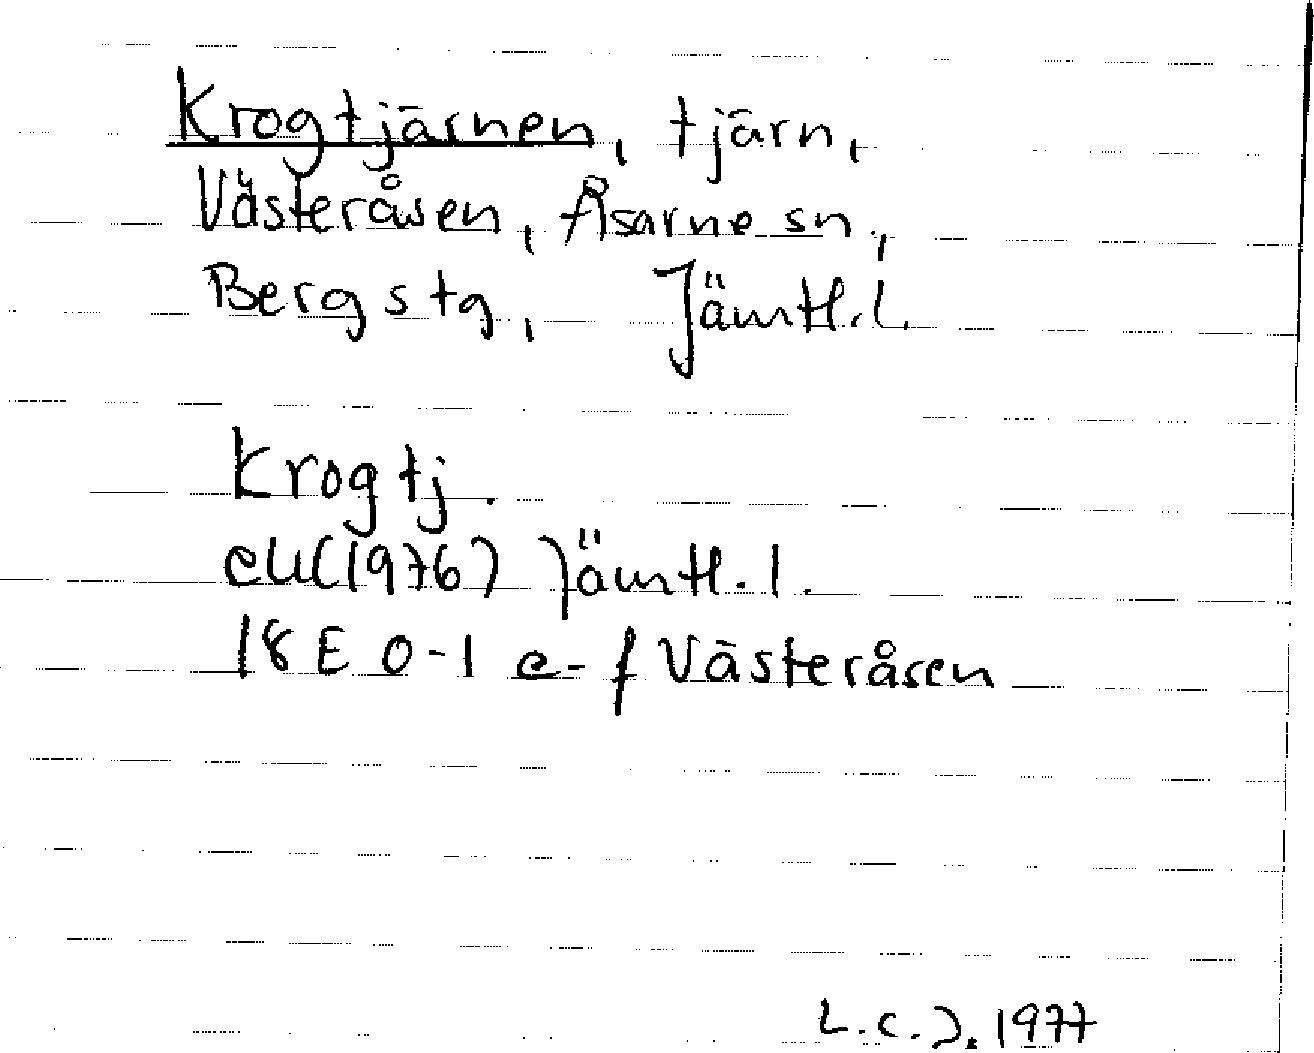 Krogtjärnen, tjärn,
Västeråsen, Åsarne sn,
Bergs tg, Jämtl.l.
Krogtj.
eK(1976) Jämtl.l.
18E 0-1 e-f Västeråsen
L.C.J. 1977